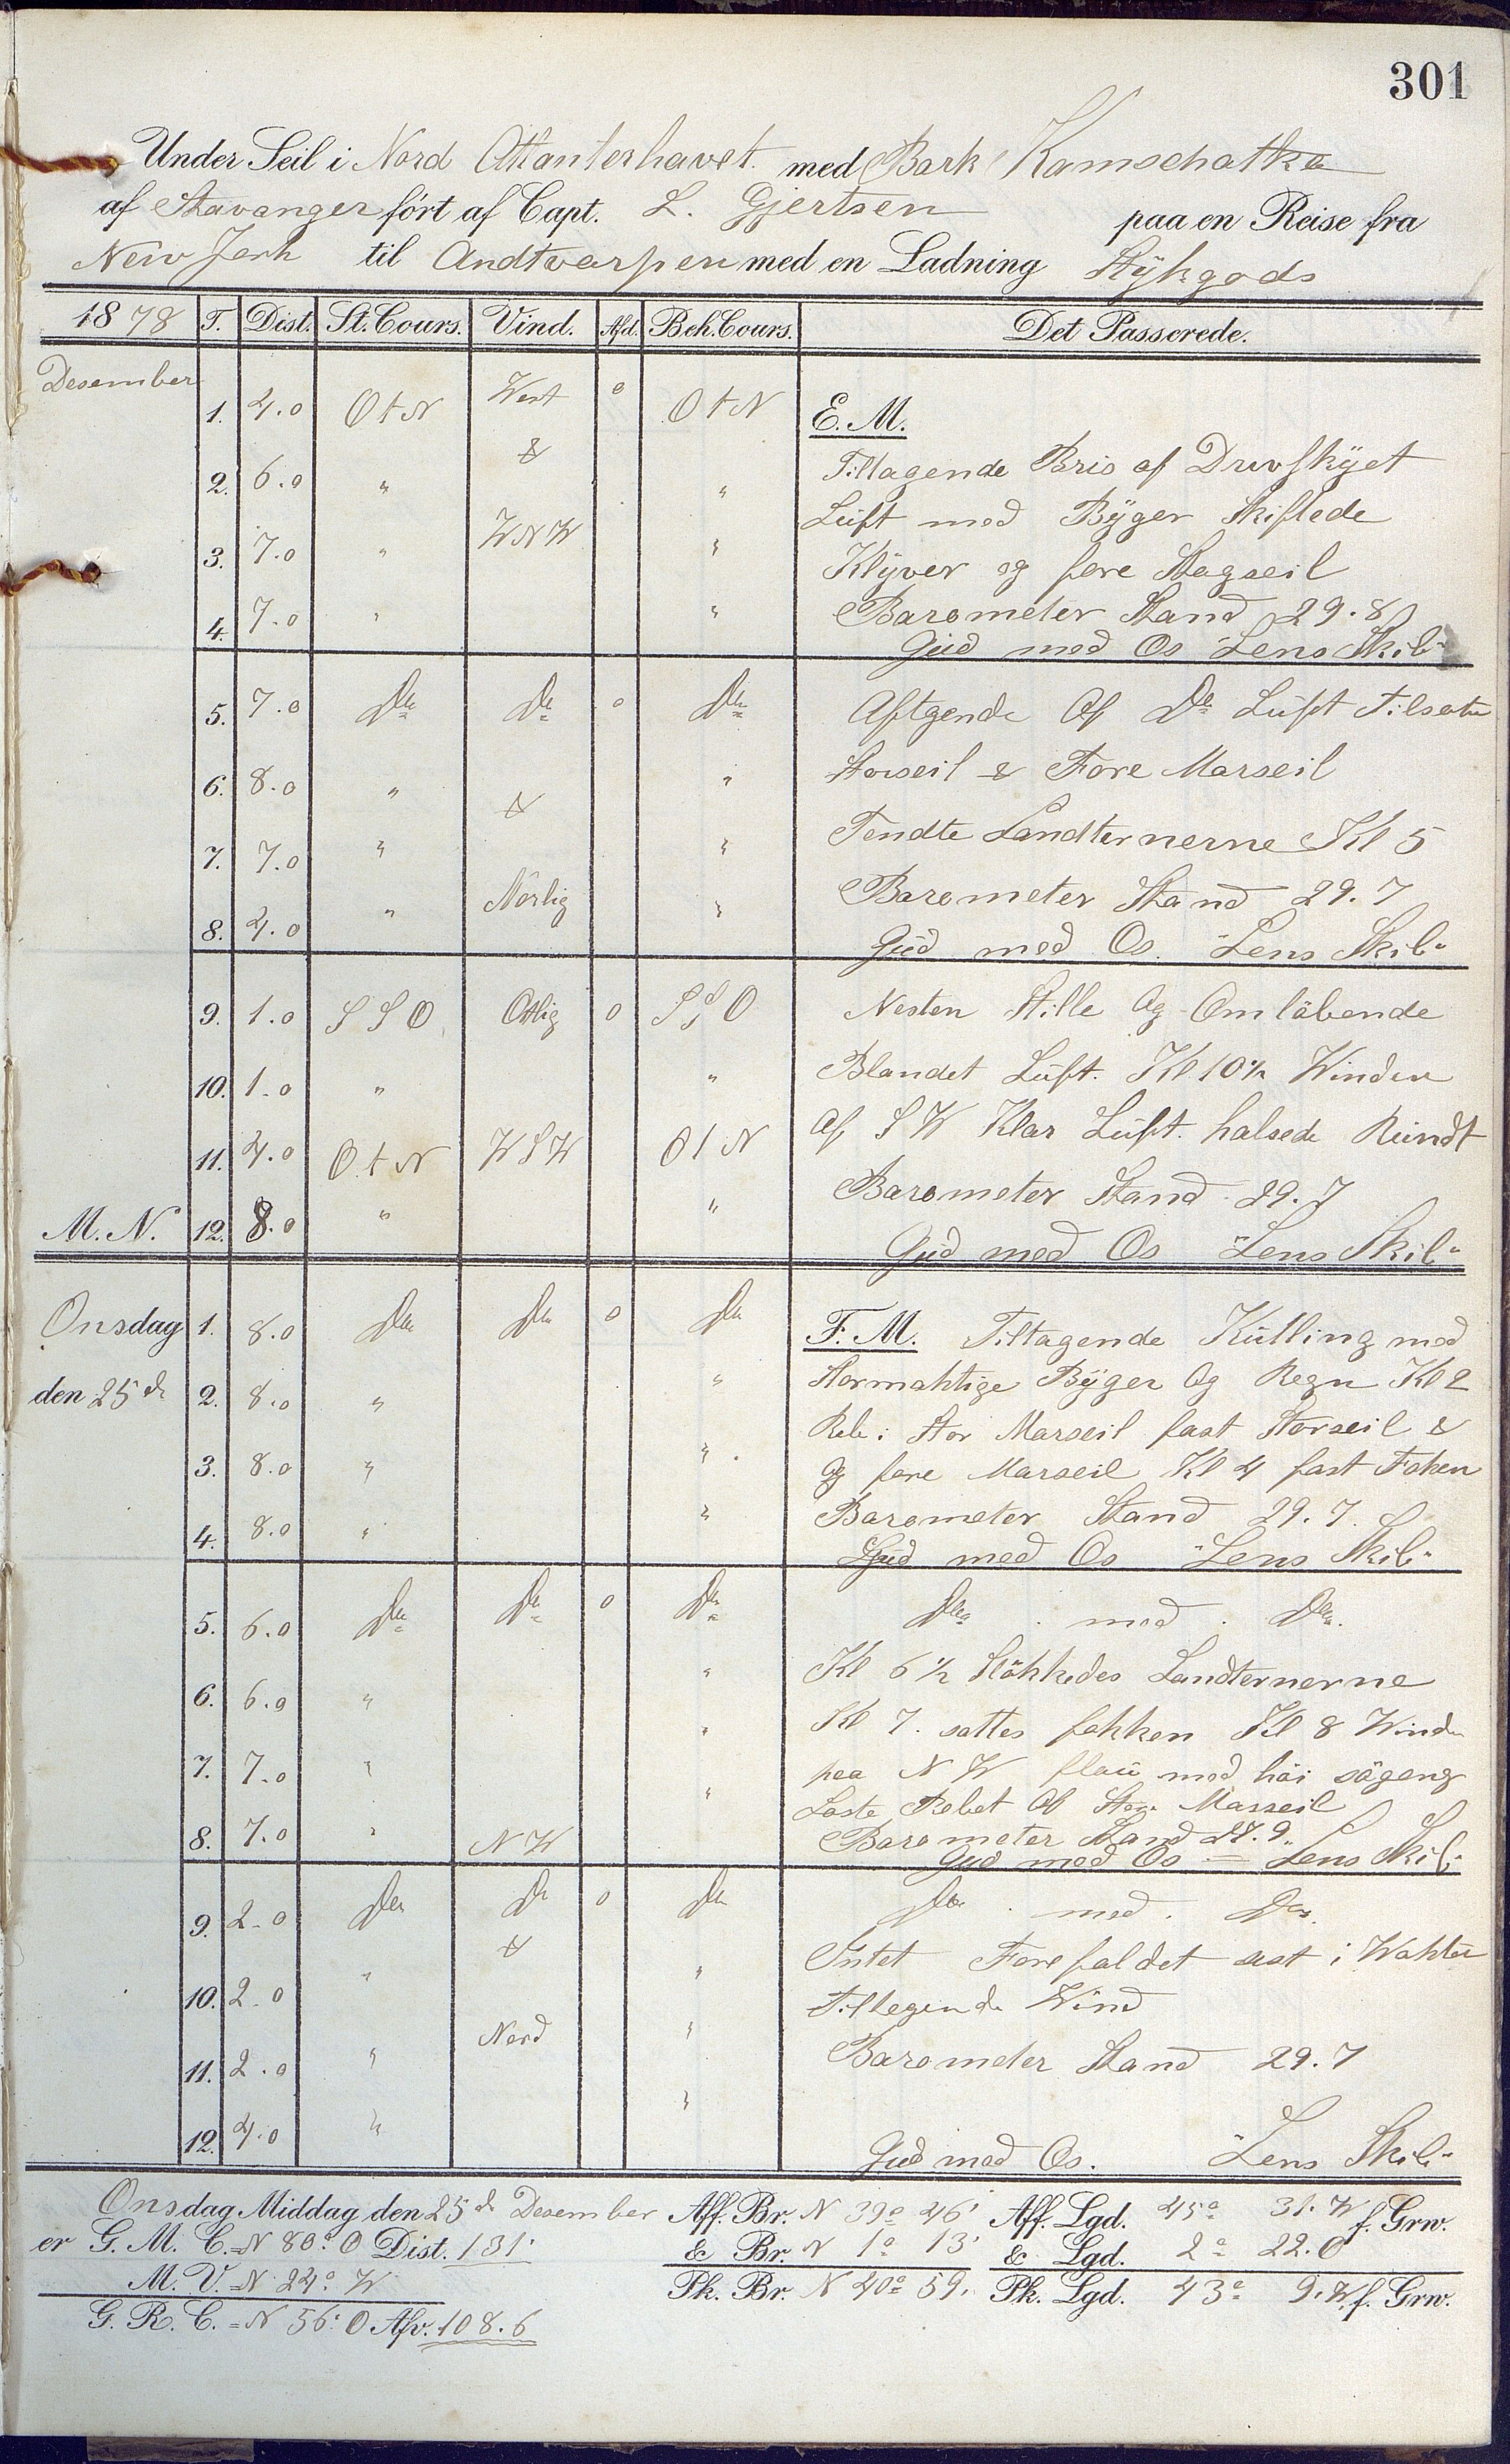 301
Under Seil i Nord Atlanterhavet med Bark Kamschatka
af Stavanger ført af Capt. L. Gjertsen paa en Reise fra
New Jork til Andtvarpen med en Ladning Stÿkgods
1878 T. Dist. St. Cours. Vind. Afd. Beh. Cours. Det Passerede.
Desember
1. 4.0 O t N West 0 O t N E. M.
2. 6.0 " & " Tiltagende Bris af Drivskÿet
Lüft med Bÿger Skiftede
3. 7.0 " WNW " Klÿver og fore Stagseil
4. 7.0 " " Barometer Stand 29.8
Güd med Os Lens Skib"
5. 7.0 Do Do 0 Do Aftgende Af Do Lüft Tilsatte
6. 8.0 " & " Storseil & Fore Marseil
7. 7.0 " " Tendte Landternerne Kl 5
8. 4.0 " Norlig " Barometer Stand 29.7
Güd med Os. Lens Skib"
9. 1.0 S S O Ostlig 0 S S O Nesten Stille Og Omlöbende
10. 1.0 " " Blandet Lüft. Kl 10½ Winden
11. 4.0 O t N W S W O t N Af S W Klar Lüft. halsede Ründt
M. N. 12. 8.0 " " Barometer Stand 29.7
Güd med Os Lens Skib"
Onsdag 1. 8.0 Do Do 0 Do F. M. Tiltagende Külling med
den 25de 2. 8.0 " " Stormahtige Bÿger Og Regn Kl 2
Reb i Stor Marseil fast Storseil &
3. 8.0 " " Og fore Marseil Kl 4 fast Foken
4. 8.0 " " Barometer Stand 29.7
Güd med Os Lens Skib"
5. 6.0 Do Do 0 Do Do med Do
6. 6.0 " " Kl 6½ Slökkedes Landternerne
Kl 7. sattes fokken Kl 8 Winden
7. 7.0 " " paa N W flaü med höi sögang
Loste Rebet Af Stor Marseil
8. 7.0 " N W " Barometer Stand 29.9
Güd med Os Lens Skib"
9. 2.0 Do Do 0 Do Do med Do
10. 2.0 " & " Intet Forefaldet i Wahten
Tiltegende Wind
11. 2.0 " Nord " Barometer Stand 29.7
12. 4.0 " "
Güd med Os. Lens Skib"
Onsdag Middag den 25de Desember Aff. Br. N 39° 46' Aff. Lgd. 45° 31. W f. Grw.
er G. M. C. = N 80° O Dist. 131' & Br. N 1° 13' & Lgd. 2° 22. O
M. V. = N 24° W Pk. Br. N 40° 59. Pk. Lgd. 43° 9. W f. Grw.
G. R. C. = N 56° O Afv. 108.6